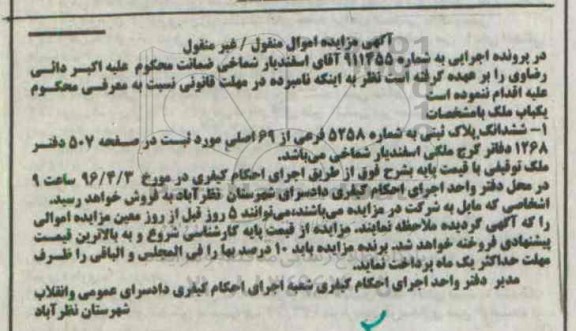 آگهی مزایده اموال منقول / غیر منقول
در پرونده اجرایی به شماره ۹۱۱۴۵۵ آقای اسفندیار شماخی ضمانت محکوم علیه اکبر دائی
رضاوی را بر عهده گرفته است نظر به اینکه نامبرده در مهلت قانونی نسبت به معرفی محکوم
علیه اقدام ننموده است
یکباب ملک بامشخصات:
۱- ششدانگ پلاک ثبتی به شماره ۵۲۵۸ فرعی از ۶۹ اصلی مورد ثبت در صفحه ۵۰۷ دفتر
۱۲۶۸ دفاتر کرج ملکی اسفندیار شماخی می‌باشد.
ملک توقیفی با قیمت پایه بشرح فوق از طریق اجرای احکام کیفری در مورخ ۹۶/۴/۳ ساعت ۹
در محل دفتر واحد اجرای احکام کیفری دادسرای شهرستان نظرآباد به فروش خواهد رسید.
اشخاصی که مایل به شرکت در مزایده می‌باشندمی‌توانند ۵ روز قبل از روز معین مزایده اموالی
را که آگهی گردیده ملاحظه نمایند. مزایده از قیمت پایه کارشناسی شروع و به بالاترین قیمت
پیشنهادی فروخته خواهد شد. برنده مزایده باید ۱۰ درصد بها را فی المجلس و الباقی را ظرف
مهلت حداکثر یک ماه پرداخت نماید.
مدیر دفتر واحد اجرای احکام کیفری شعبه اجرای احکام کیفری دادسرای عمومی وانقلاب
شهرستان نظرآباد